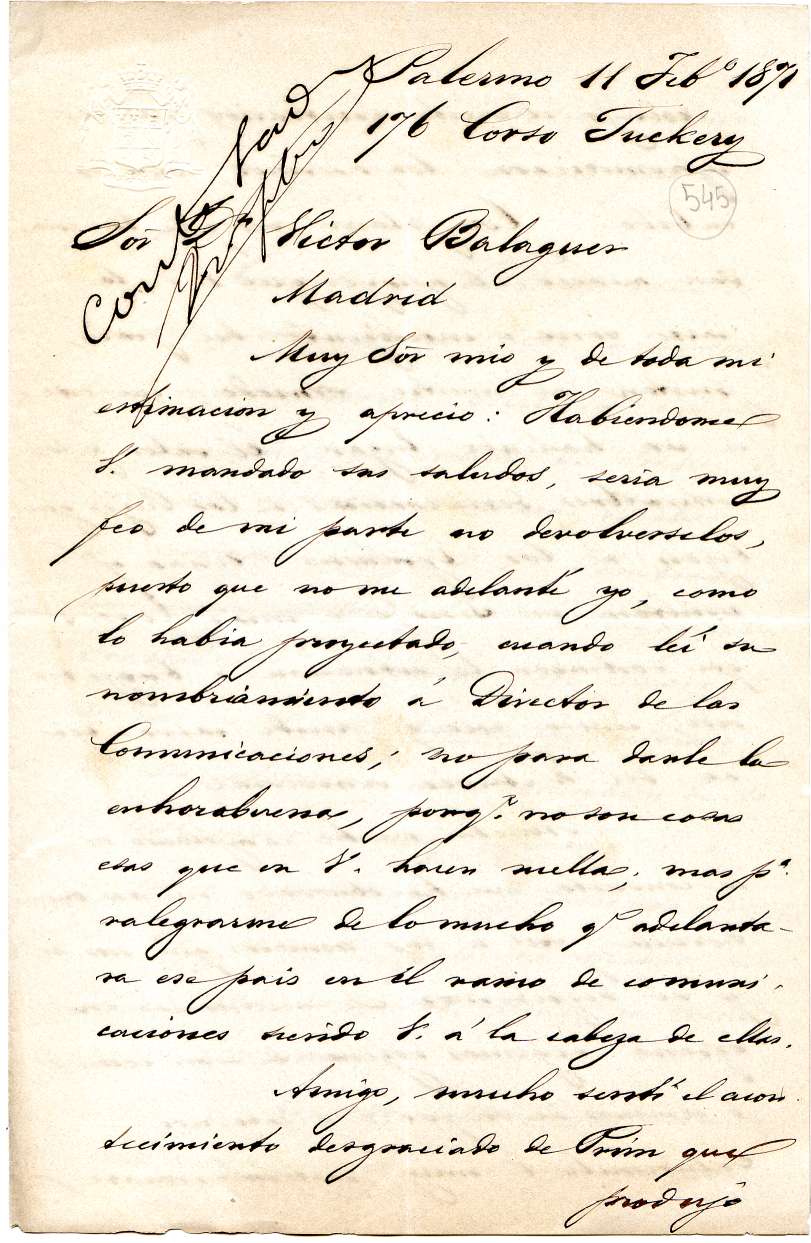 Palermo 11 Feb.º 1871
176 Corso Tuckery
545
Sõr Dⁿ Victor Balaguer
Madrid
Muy Sõr mio y de toda mi
estimacion y aprecio: Habiendome
V. mandado sus saludos, seria muy
feo de mi parte no devolverselos,
puesto que no me adelanté yo, como
lo habia proyectado, cuando leí su
nombramiento á Director de las
Comunicaciones; no para darle la
enhorabuena, porq.e no son cosas
esas que en V. hacen mella; mas p.a
alegrarme de lo mucho q.e adelanta-
ra ese pais en el ramo de comuni-
caciones siendo V. á la cabeza de ellas.
Amigo, mucho sentí el acon-
tecimiento desgraciado de Prim que
produjo